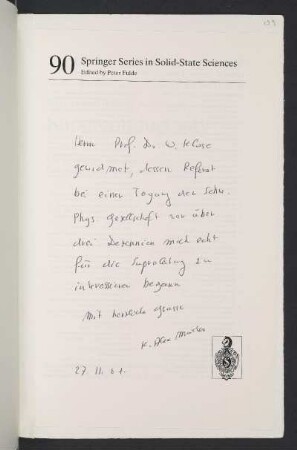 90 Springer Series in Solid-State Sciences
Edited by Peter Fulde
Herrn Prof. Dr. W. Klose
gewidmet, dessen Referat
bei einer Tagung der Schw.
Phys Gesellschaft vor über
drei Dezennien mich echt
für die Supraleitung zu
interessieren begann
Mit herzliche Grüsse
K. Alex Müller
27. 11. 01.